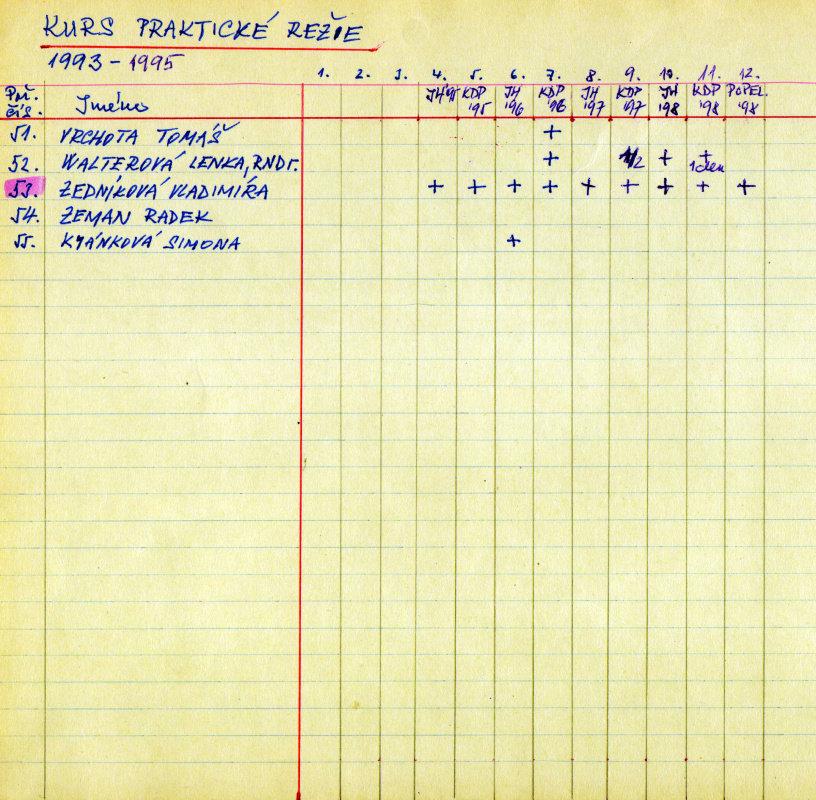 KURS PRAKTICKÉ REŽIE
1993 - 1995
1. 2. 3. 4. 5. 6. 7. 8. 9. 10. 11. 12.
Poř. čís. Jméno JH'95 KDP '95 JH '96 KDP '96 JH '97 KDP '97 JH '98 KDP '98 POPEL. '98
51. VRCHOTA TOMÁŠ +
52. WALTEROVÁ LENKA, RNDr. + 1/2 + + 1 den
53. ZEDNÍKOVÁ VLADIMÍRA + + + + + + + + +
54. ZEMAN RADEK
55. KYÁNKOVÁ SIMONA +